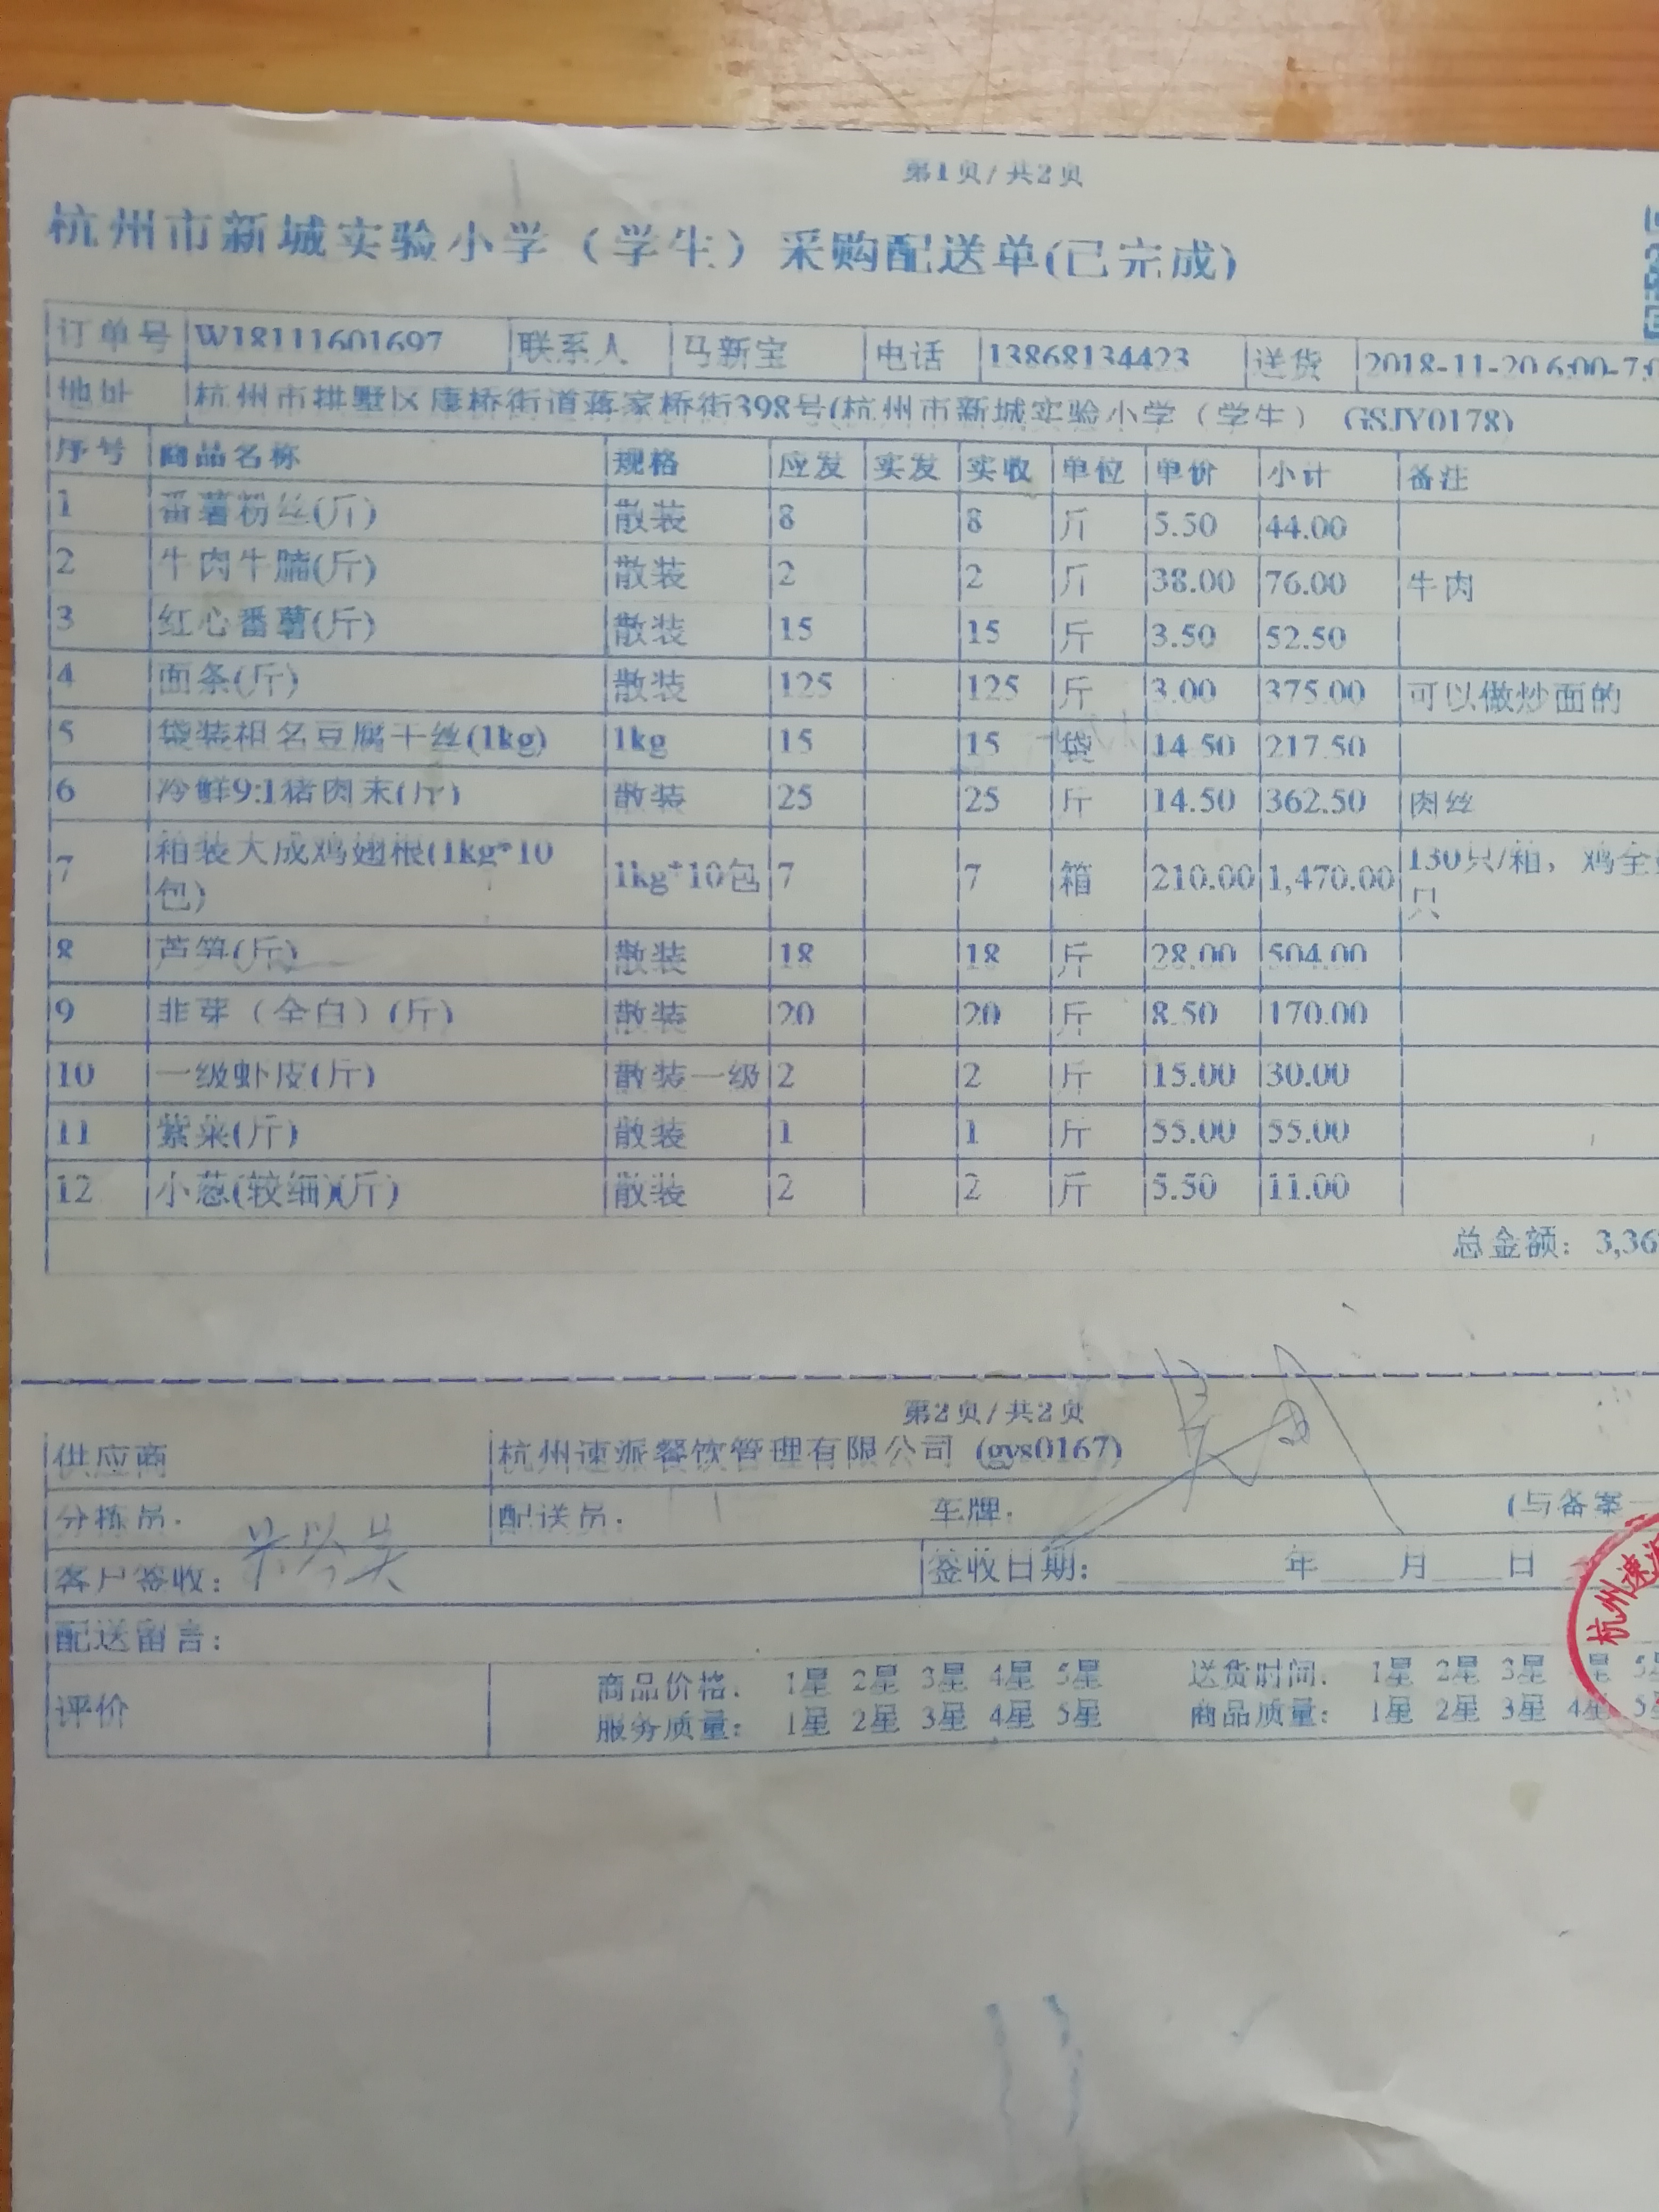 第1页/共2页
杭州市新城实验小学（学生）采购配送单(已完成)
订单号 W18111601697 联系人 马新宝 电话 13868134423 送货 2018-11-20 6:00-7:0
地址 杭州市拱墅区康桥街道蒋家桥街398号(杭州市新城实验小学（学生） GSJY0178)
序号 商品名称 规格 应发 实发 实收 单位 单价 小计 备注
1 番薯粉丝(斤) 散装 8 8 斤 5.50 44.00
2 牛肉牛腩(斤) 散装 2 2 斤 38.00 76.00 牛肉
3 红心番薯(斤) 散装 15 15 斤 3.50 52.50
4 面条(斤) 散装 125 125 斤 3.00 375.00 可以做炒面的
5 袋装祖名豆腐干丝(1kg) 1kg 15 15 袋 14.50 217.50
6 冷鲜9:1猪肉末(斤) 散装 25 25 斤 14.50 362.50 肉丝
7 箱装大成鸡翅根(1kg*10包) 1kg*10包 7 7 箱 210.00 1,470.00 130只/箱，鸡全 只
8 芦笋(斤) 散装 18 18 斤 28.00 504.00
9 韭芽（全白）(斤) 散装 20 20 斤 8.50 170.00
10 一级虾皮(斤) 散装一级 2 2 斤 15.00 30.00
11 紫菜(斤) 散装 1 1 斤 55.00 55.00
12 小葱(较细)(斤) 散装 2 2 斤 5.50 11.00
总金额：3,36
第2页/共2页
供应商 杭州速派餐饮管理有限公司 (gys0167)
分拣员： 配送员： 车牌： (与备案一
客户签收： 签收日期： 年 月 日
配送留言：
评价 商品价格： 1星 2星 3星 4星 5星 送货时间： 1星 2星 3星 星 5星
服务质量： 1星 2星 3星 4星 5星 商品质量： 1星 2星 3星 4星 5星
杭州速派